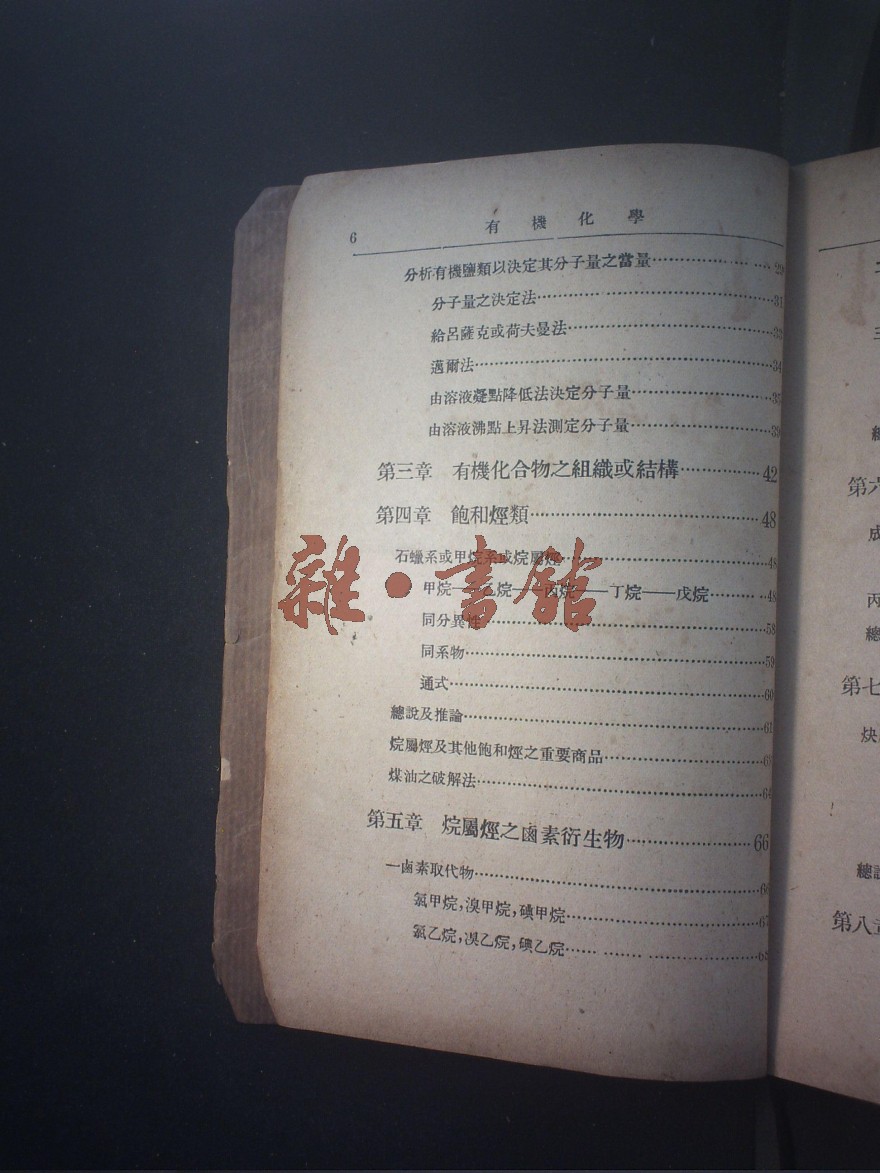 6
有機化學
分析有機鹽類以決定其分子量之當量……29
分子量之決定法……31
給呂薩克或荷夫曼法……33
邁爾法……34
由溶液凝點降低法決定分子量……35
由溶液沸點上昇法測定分子量……39
第三章 有機化合物之組織或結構……42
第四章 飽和烴類……48
石蠟系或甲烷系或烷屬烴……48
甲烷——乙烷——丙烷——丁烷——戊烷……48
同分異性……58
同系物……59
通式……60
總說及推論……61
烷屬烴及其他飽和烴之重要商品……63
煤油之破解法……64
第五章 烷屬烴之鹵素衍生物……66
一鹵素取代物……66
氯甲烷,溴甲烷,碘甲烷……67
氯乙烷,溴乙烷,碘乙烷……68
雜·書館
第六
成
丙
總
第七
炔
總說
第八章